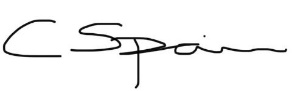 C Spain